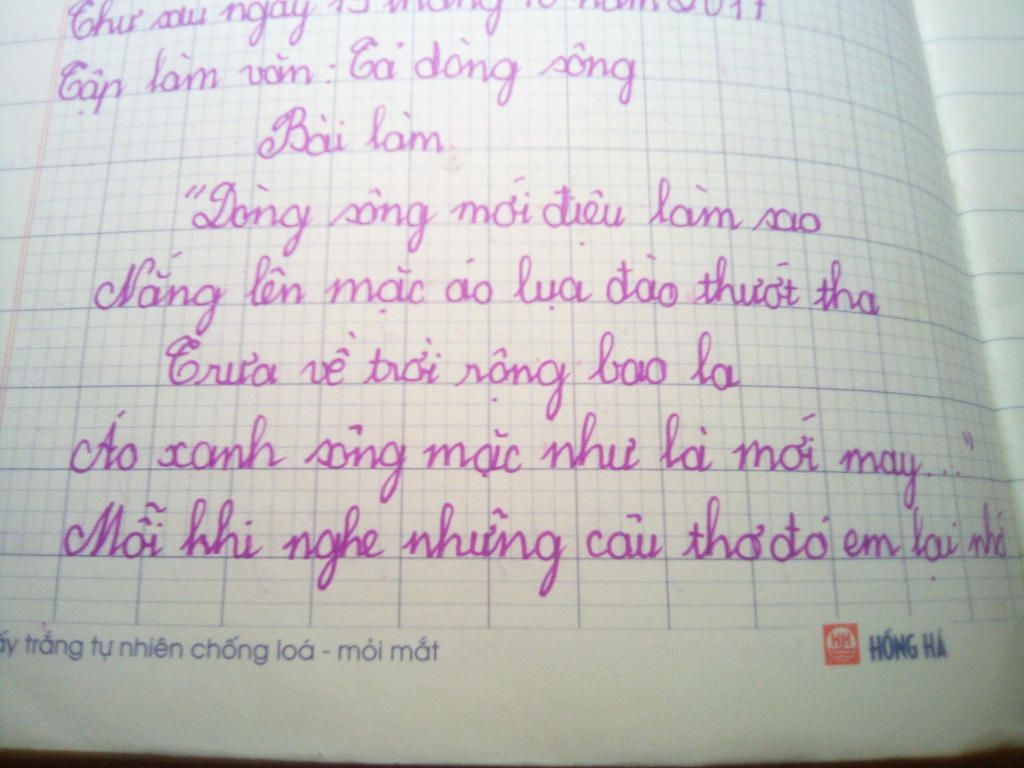 Thứ sáu ngày 13 tháng 10 năm 2017
Tập làm văn: Tả dòng sông
Bài làm
"Dòng sông mới điệu làm sao
Nắng lên mặc áo lụa đào thướt tha
Trưa về trời rộng bao la
Áo xanh sông mặc như là mới may..."
Mỗi khi nghe những câu thơ đó em lại nhớ
ấy trắng tự nhiên chống loá - mỏi mắt
HH HỒNG HÀ